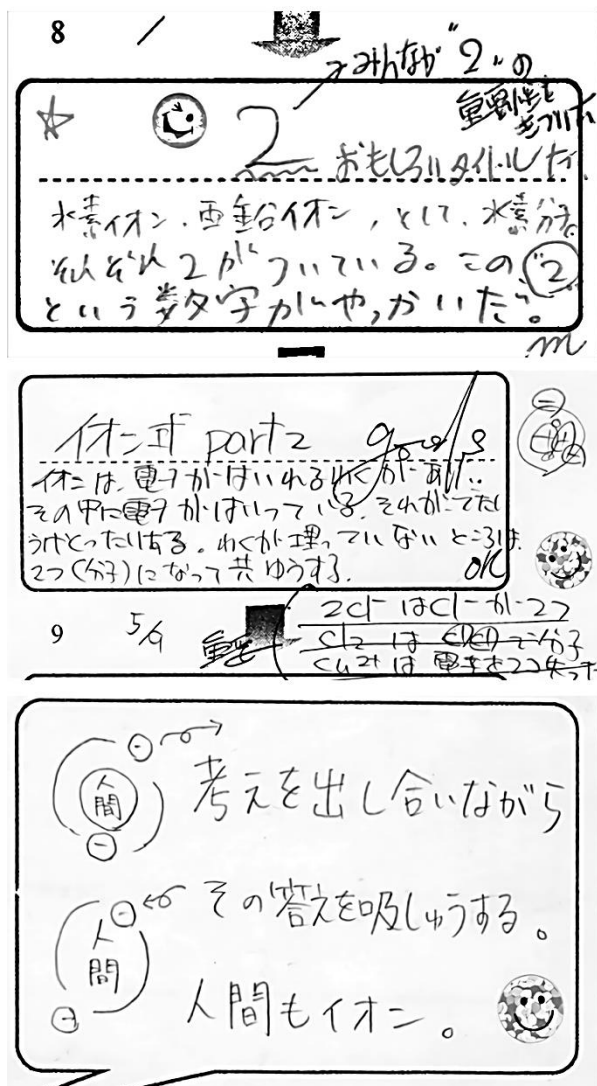 8 /
みんなが"2"の
重要性を
きづいた
2 おもしろいタイトルだ
水素イオン、亜鉛イオン、として、水素分子
それぞれ2がついている。この"2"
という数字がやっかいだ。
m
イオン式 part2 goods
イオンは、電子がはいれるわくがあり、
その中に電子がはいっている。それがでたり
うけとったりする。わくが埋っていないところは、
2つ(分子)になって共ゆうする。
OK
9 5/9
重要
2Cl⁻はCl⁻が2つ
Cl₂は ClCl で分子
Cu²⁺は電子を2つ失った
人間 考えを出し合いながら
人間 その答えを吸しゅうする。
人間もイオン。